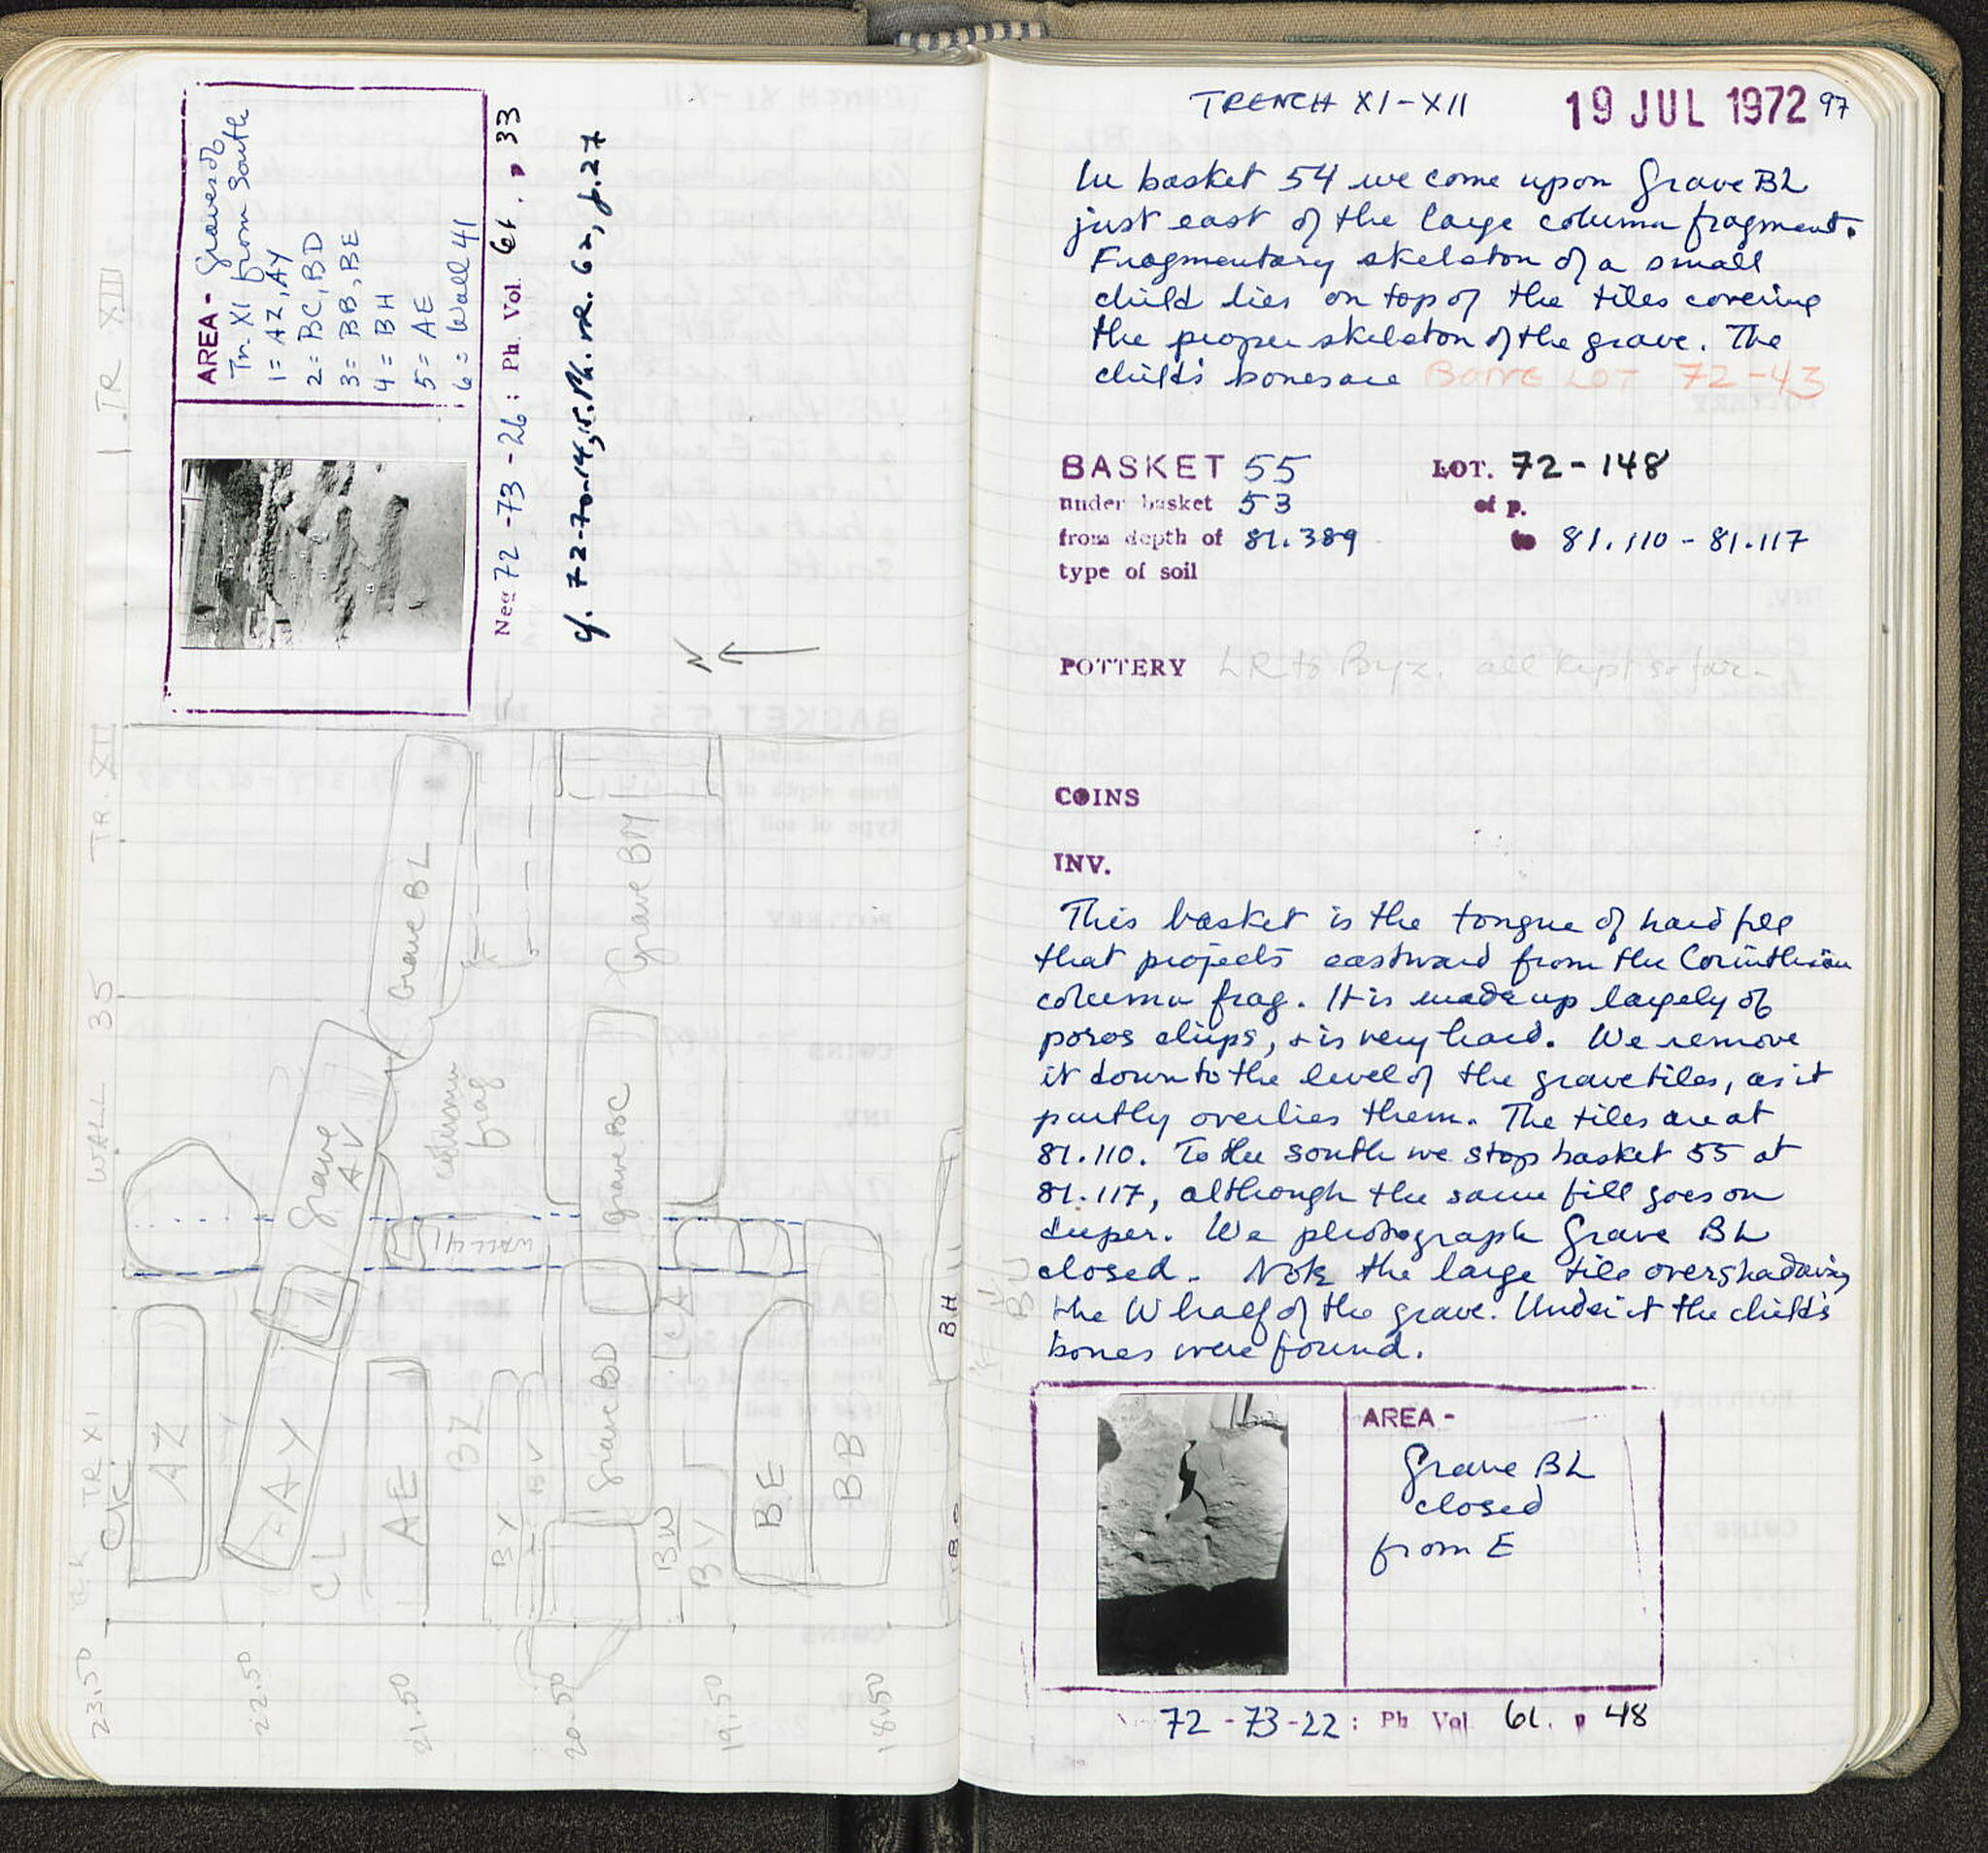 AREA - Graves of
Tr. XI from South
1 = AZ, AY
2 = BC, BD
3 = BB, BE
4 = BH
5 = AE
6 = Wall 41
Neg 72-73-26: Ph. Vol. 61. p 33
cf. 72-70-14, 15. Ph. VR. 62, p. 27
N
TR XIII
TR. XII
WALL 35
TR XI
Grave BL
Grave BM
column
frag
Grave
AV
Grave BC
WALL 41
Grave BD
AZ
AY
CK
CL
AE
BZ
BY
BV
BW
BV
CA
BE
BB
BH
BU
23.50
22.50
21.50
20.50
19.50
18.50
TRENCH XI-XII 19 JUL 1972 97
In basket 54 we come upon Grave BL
just east of the large column fragment.
Fragmentary skeleton of a small
child lies on top of the tiles covering
the proper skeleton of the grave. The
child's bones are BONE LOT 72-43
BASKET 55 LOT. 72-148
under basket 53 of p.
from depth of 81.389 to 81.110 - 81.117
type of soil
POTTERY LR to Byz. all kept so far-
COINS
INV.
This basket is the tongue of hard fill
that projects eastward from the Corinthian
column frag. It is made up largely of
poros chips, + is very hard. We remove
it down to the level of the grave tiles, as it
partly overlies them. The tiles are at
81.110. To the south we stop basket 55 at
81.117, although the same fill goes on
deeper. We photograph Grave BL
closed. Note the large tile overshadowing
the W half of the grave. Under it the child's
bones were found.
AREA -
Grave BL
closed
from E
72-73-22: Ph Vol 61. p 48